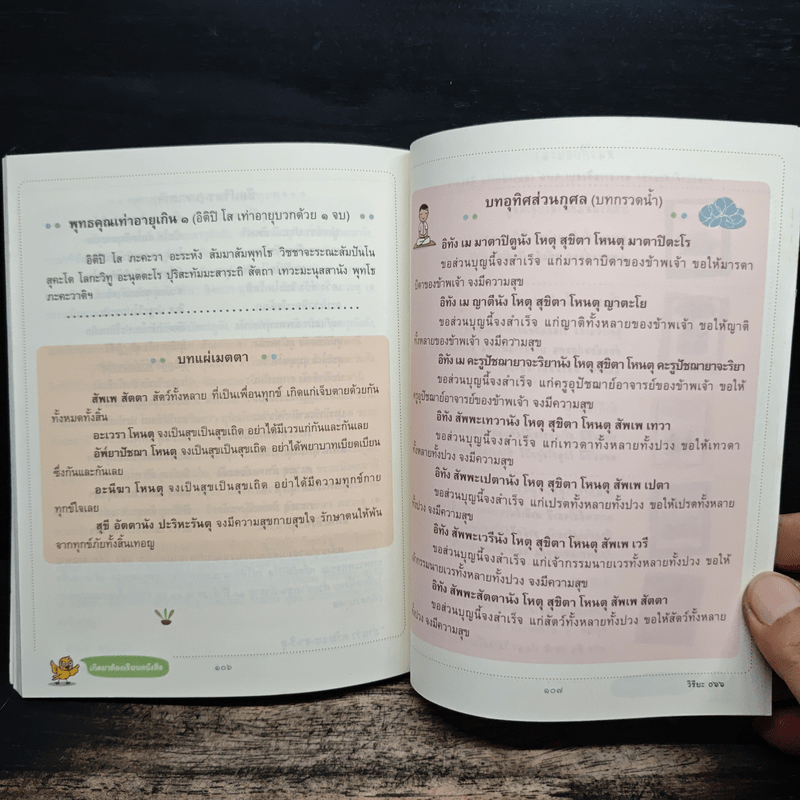 พุทธคุณเท่าอายุเกิน ๑ (อิติปิ โส เท่าอายุบวกด้วย ๑ จบ)
อิติปิ โส ภะคะวา อะระหัง สัมมาสัมพุทโธ วิชชาจะระณะสัมปันโน
สุคะโต โลกะวิทู อะนุตตะโร ปุริสะทัมมะสาระถิ สัตถา เทวะมะนุสสานัง พุทโธ
ภะคะวาติฯ
บทแผ่เมตตา
สัพเพ สัตตา สัตว์ทั้งหลาย ที่เป็นเพื่อนทุกข์ เกิดแก่เจ็บตายด้วยกัน
ทั้งหมดทั้งสิ้น
อะเวรา โหนตุ จงเป็นสุขเป็นสุขเถิด อย่าได้มีเวรแก่กันและกันเลย
อัพ์ยาปัชฌา โหนตุ จงเป็นสุขเป็นสุขเถิด อย่าได้พยาบาทเบียดเบียน
ซึ่งกันและกันเลย
อะนีฆา โหนตุ จงเป็นสุขเป็นสุขเถิด อย่าได้มีความทุกข์กาย
ทุกข์ใจเลย
สุขี อัตตานัง ปะริหะรันตุ จงมีความสุขกายสุขใจ รักษาตนให้พ้น
จากทุกข์ภัยทั้งสิ้นเทอญ
เกิดมาต้องเรียนหนังสือ
๑๐๖
บทอุทิศส่วนกุศล (บทกรวดน้ำ)
อิทัง เม มาตาปิตูนัง โหตุ สุขิตา โหนตุ มาตาปิตะโร
ขอส่วนบุญนี้จงสำเร็จ แก่มารดาบิดาของข้าพเจ้า ขอให้มารดา
บิดาของข้าพเจ้า จงมีความสุข
อิทัง เม ญาตีนัง โหตุ สุขิตา โหนตุ ญาตะโย
ขอส่วนบุญนี้จงสำเร็จ แก่ญาติทั้งหลายของข้าพเจ้า ขอให้ญาติ
ทั้งหลายของข้าพเจ้า จงมีความสุข
อิทัง เม คะรูปัชฌายาจะริยานัง โหตุ สุขิตา โหนตุ คะรูปัชฌายาจะริยา
ขอส่วนบุญนี้จงสำเร็จ แก่ครูอุปัชฌาย์อาจารย์ของข้าพเจ้า ขอให้
ครูอุปัชฌาย์อาจารย์ของข้าพเจ้า จงมีความสุข
อิทัง สัพพะเทวานัง โหตุ สุขิตา โหนตุ สัพเพ เทวา
ขอส่วนบุญนี้จงสำเร็จ แก่เทวดาทั้งหลายทั้งปวง ขอให้เทวดา
ทั้งหลายทั้งปวง จงมีความสุข
อิทัง สัพพะเปตานัง โหตุ สุขิตา โหนตุ สัพเพ เปตา
ขอส่วนบุญนี้จงสำเร็จ แก่เปรตทั้งหลายทั้งปวง ขอให้เปรตทั้งหลาย
ทั้งปวง จงมีความสุข
อิทัง สัพพะเวรีนัง โหตุ สุขิตา โหนตุ สัพเพ เวรี
ขอส่วนบุญนี้จงสำเร็จ แก่เจ้ากรรมนายเวรทั้งหลายทั้งปวง ขอให้
เจ้ากรรมนายเวรทั้งหลายทั้งปวง จงมีความสุข
อิทัง สัพพะสัตตานัง โหตุ สุขิตา โหนตุ สัพเพ สัตตา
ขอส่วนบุญนี้จงสำเร็จ แก่สัตว์ทั้งหลายทั้งปวง ขอให้สัตว์ทั้งหลาย
ทั้งปวง จงมีความสุข
๑๐๗
วิริยะ ๑๖๖